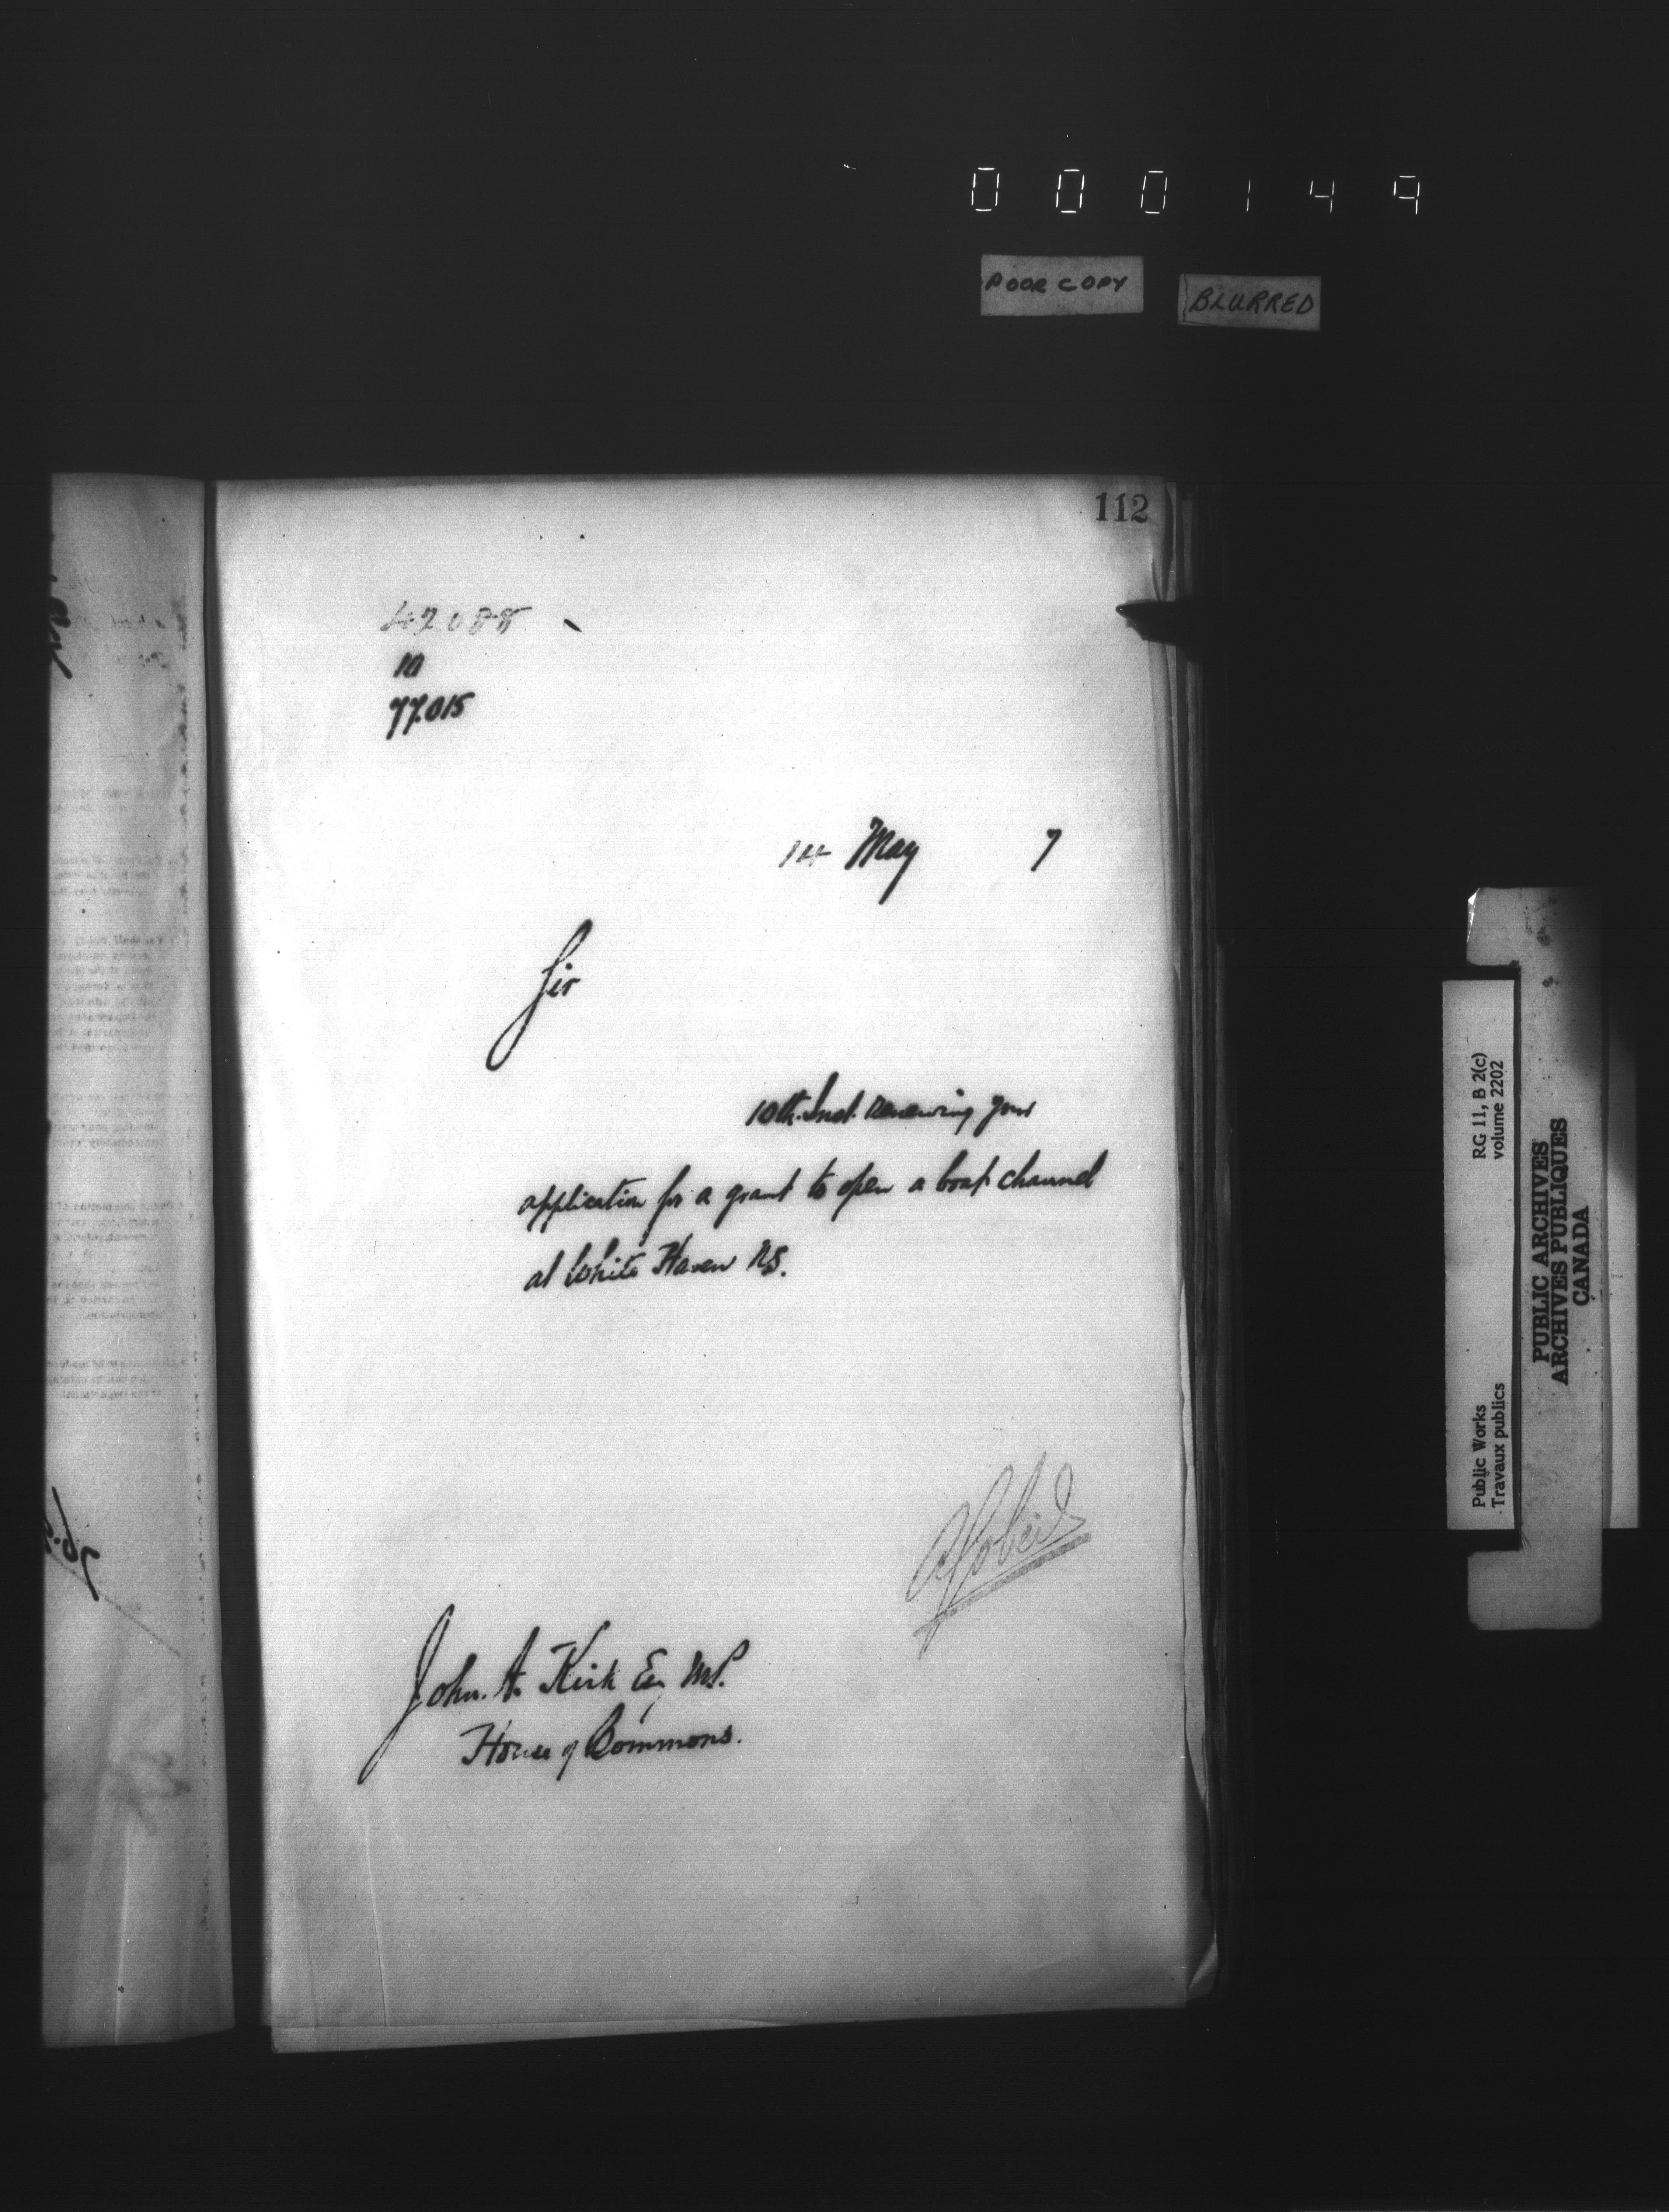 000149
POOR COPY
BLURRED
112
42088
10
77.015
14 May 7
Sir
10th Inst. renewing your
application for a grant to open a boat channel
at White Haven NS.
John. A. Kirk Esq M.P.
House of Commons.
Public Works
Travaux publics
RG 11, B 2(c)
volume 2202
PUBLIC ARCHIVES
ARCHIVES PUBLIQUES
CANADA